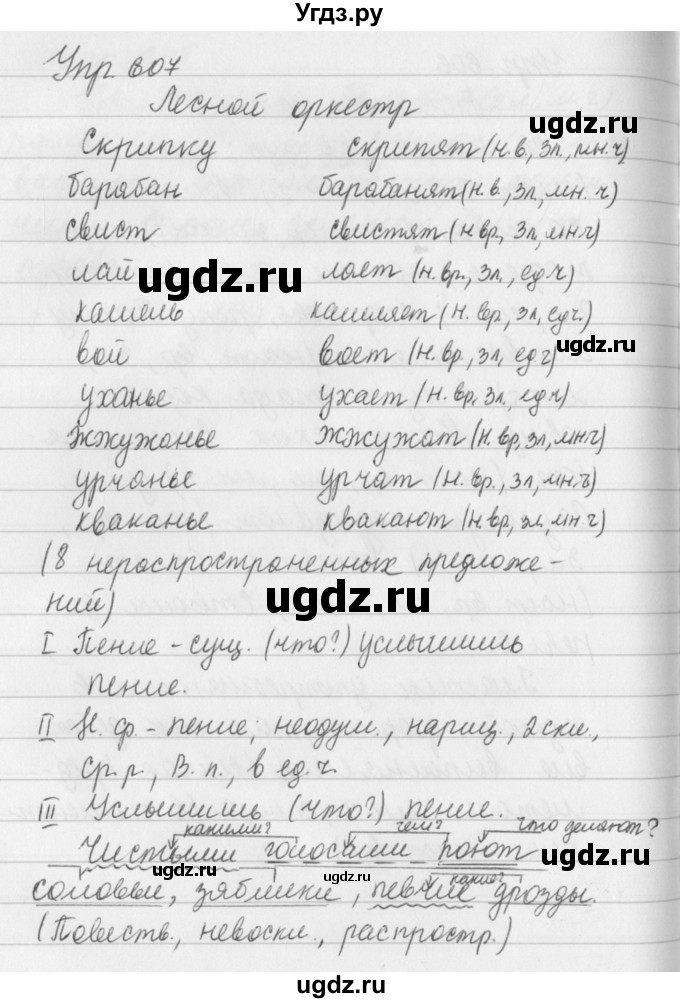 Угдз.ру
Упр 307
Лесной оркестр
Скрипку скрипят (н.в., 3л., мн.ч)
барабан барабанят (н.в., 3л, мн.ч)
свист свистят (н.вр, 3л, мн.ч)
лай лает (н.вр., 3л, ед.ч)
кашель кашляет (н.вр, 3л, ед.ч.)
вой воет (н.вр, 3л, ед.ч)
уханье ухает (н.вр, 3л, ед.ч)
жжужанье жжужат (н.вр, 3л, мн.ч)
урчанье урчат (н.вр., 3л, мн.ч)
кваканье квакают (н.вр, 3л, мн.ч)
(8 нераспространенных предложе-
ний)
I Пение - сущ. (что?) услышишь
пение.
II Н.ф. - пение, неодуш., нариц., 2 скл.,
ср.р, В.п., в ед.ч.
III Услышишь (что?) пение.
какими? чем? что делают?
Чистыми голосами поют
соловьи, зяблики, певчие дрозды.
какие?
(Повеств., невоскл., распростр.)
ugdz.ru
ugdz.ru
ugdz.ru
ugdz.ru
ugdz.ru
ugdz.ru
ugdz.ru
ugdz.ru